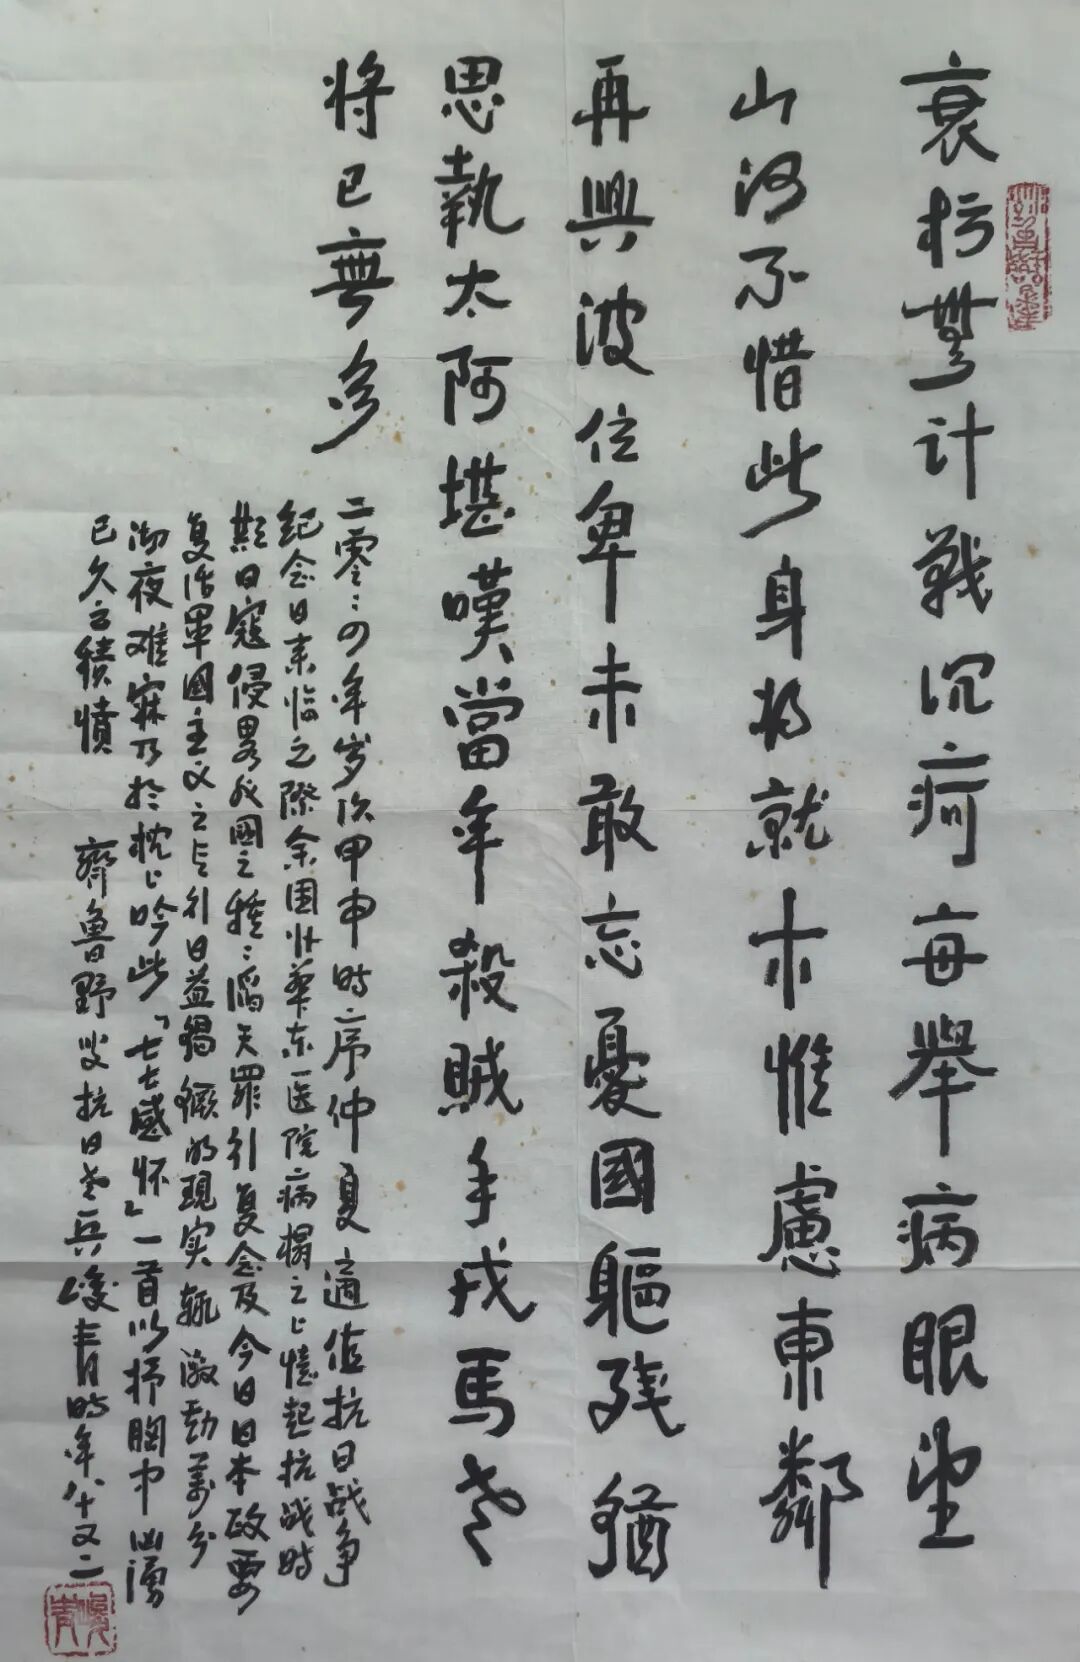 衰朽無計戰沉疴每舉病眼望
山河不惜此身将就木惟慮東鄰
再興波位卑未敢忘憂國軀殘猶
思執太阿堪嘆當年殺賊手戎馬老
将已無多
二零零四年岁次甲申时序仲夏适值抗日战争
纪念日来临之际余因卧华东医院病榻之上憶起抗战时
期日寇侵畧我國之種種滔天罪行复念及今日日本政要
复活軍國主义之言行日益猖獗的現实辄激動萬分
澈夜难寐乃於枕上吟此「七七感怀」一首以抒胸中汹湧
已久之積憤
齊魯野叟抗日老兵峻青時年八十又二
峻青